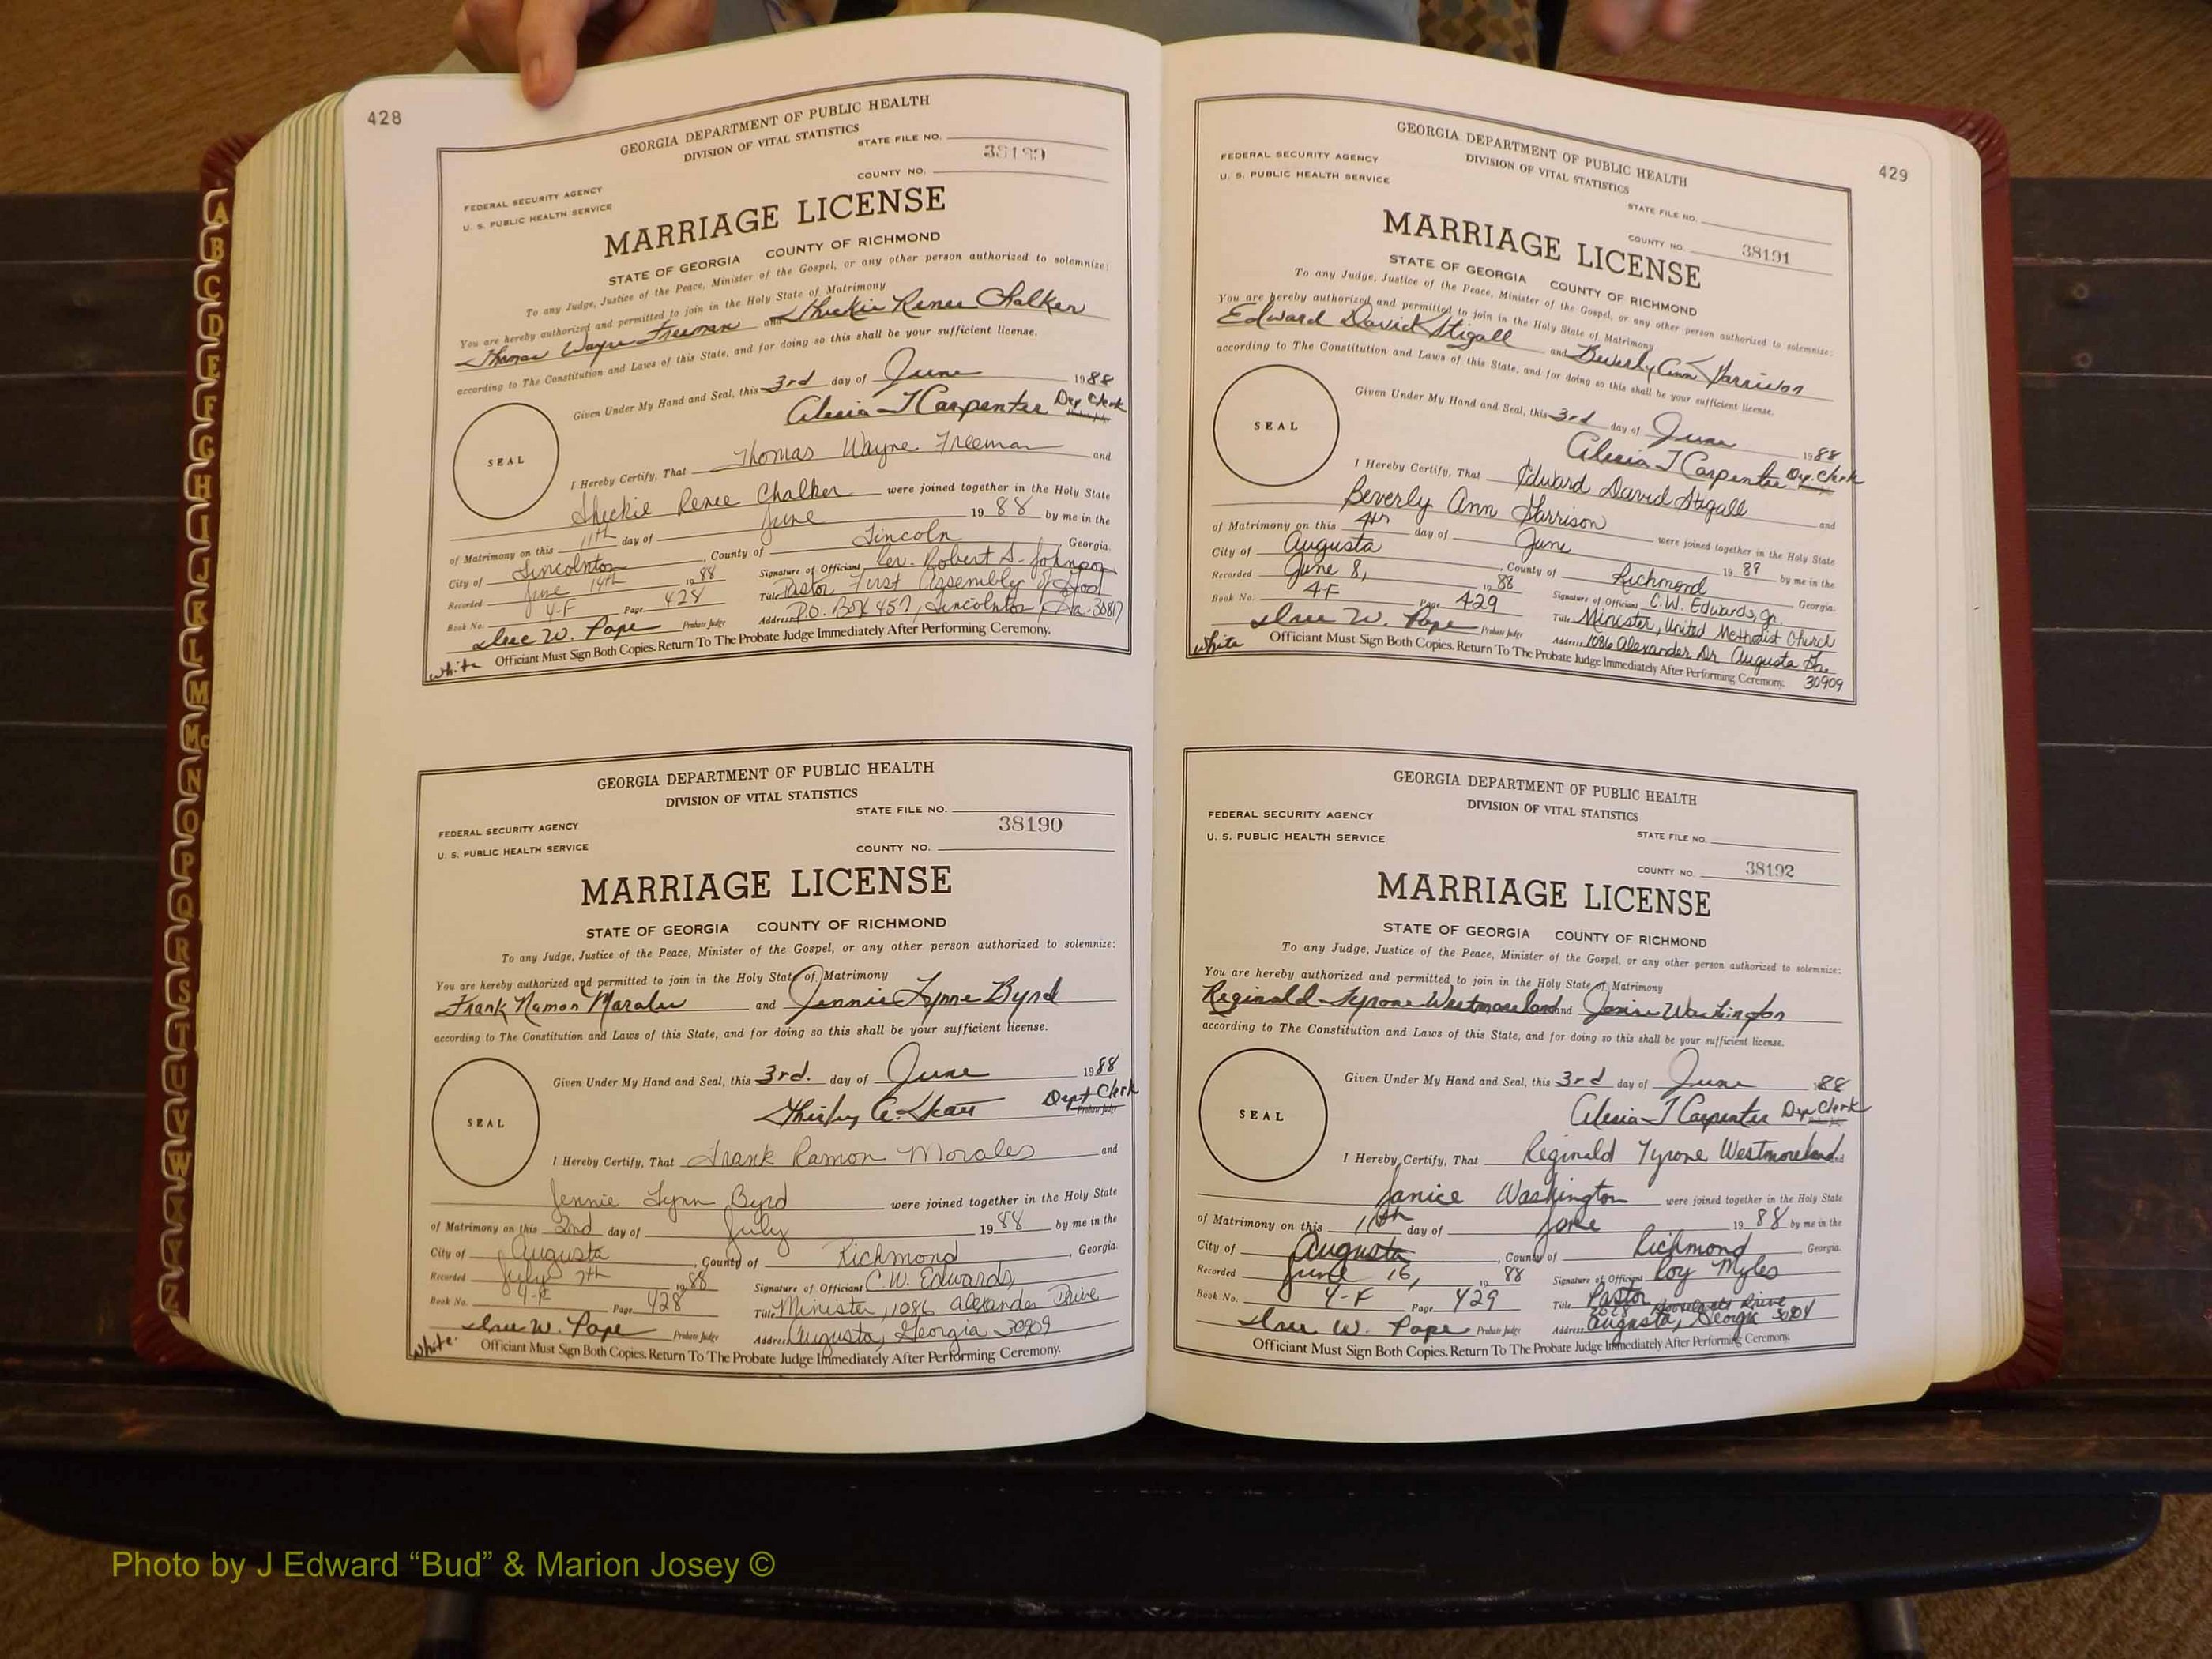 428
GEORGIA DEPARTMENT OF PUBLIC HEALTH
DIVISION OF VITAL STATISTICS
STATE FILE NO.
FEDERAL SECURITY AGENCY
U. S. PUBLIC HEALTH SERVICE
COUNTY NO.
MARRIAGE LICENSE
STATE OF GEORGIA COUNTY OF RICHMOND
To any Judge, Justice of the Peace, Minister of the Gospel, or any other person authorized to solemnize:
You are hereby authorized and permitted to join in the Holy State of Matrimony
Thomas Wayne Freeman and Sheckie Renee Chalker
according to The Constitution and Laws of this State, and for doing so this shall be your sufficient license.
Given Under My Hand and Seal, this 3rd day of June 1988
Alesia T Carpenter Dep Clerk
SEAL
I Hereby Certify, That Thomas Wayne Freeman and
Sheckie Renee Chalker were joined together in the Holy State
of Matrimony on this 11th day of June 1988 by me in the
City of Lincolnton, County of Lincoln Georgia.
Recorded June 14th 1988 Signature of Officiant Rev. Robert S. Johnson
Book No. 4-F Page 428 Title Pastor First Assembly of God
Address P.O. Box 457, Lincolnton, Ga. 30817
W. Pope Probate Judge
white Officiant Must Sign Both Copies. Return To The Probate Judge Immediately After Performing Ceremony.
GEORGIA DEPARTMENT OF PUBLIC HEALTH
DIVISION OF VITAL STATISTICS
STATE FILE NO.
38190
FEDERAL SECURITY AGENCY
U. S. PUBLIC HEALTH SERVICE
COUNTY NO.
MARRIAGE LICENSE
STATE OF GEORGIA COUNTY OF RICHMOND
To any Judge, Justice of the Peace, Minister of the Gospel, or any other person authorized to solemnize:
You are hereby authorized and permitted to join in the Holy State of Matrimony
Frank and Jennie Lynne Byrd
according to The Constitution and Laws of this State, and for doing so this shall be your sufficient license.
Given Under My Hand and Seal, this 3rd. day of June 1988
Shirley A. Dept Clerk
SEAL
I Hereby Certify, That Frank Ramon Morales and
Jennie Lynn Byrd were joined together in the Holy State
of Matrimony on this 2nd day of July 1988 by me in the
City of Augusta, County of Richmond, Georgia
Recorded July 7th 1988 Signature of Officiant C.W. Edwards,
Book No. 4-F Page 428 Title Minister, 1086 Alexander Drive
Address Augusta, Georgia 30909
W. Pope Probate Judge
white. Officiant Must Sign Both Copies. Return To The Probate Judge Immediately After Performing Ceremony.
429
GEORGIA DEPARTMENT OF PUBLIC HEALTH
DIVISION OF VITAL STATISTICS
FEDERAL SECURITY AGENCY
U. S. PUBLIC HEALTH SERVICE
STATE FILE NO.
COUNTY NO. 38191
MARRIAGE LICENSE
STATE OF GEORGIA COUNTY OF RICHMOND
To any Judge, Justice of the Peace, Minister of the Gospel, or any other person authorized to solemnize:
You are hereby authorized and permitted to join in the Holy State of Matrimony
Edward David Stigall and Beverly Ann Garrison
according to The Constitution and Laws of this State, and for doing so this shall be your sufficient license.
Given Under My Hand and Seal, this 3rd day of June 1988
Alesia T Carpenter Dep. Clerk
SEAL
I Hereby Certify, That Edward David Stigall and
Beverly Ann Garrison were joined together in the Holy State
of Matrimony on this 4th day of June 1989 by me in the
City of Augusta, County of Richmond Georgia
Recorded June 8, 1988 Signature of Officiant C.W. Edwards, Jr.
Book No. 4F Page 429 Title Minister, United Methodist Church
Address 1086 Alexander Dr Augusta Ga. 30909
W. Pope Probate Judge
white Officiant Must Sign Both Copies. Return To The Probate Judge Immediately After Performing Ceremony.
GEORGIA DEPARTMENT OF PUBLIC HEALTH
DIVISION OF VITAL STATISTICS
FEDERAL SECURITY AGENCY
U. S. PUBLIC HEALTH SERVICE
STATE FILE NO.
COUNTY NO. 38192
MARRIAGE LICENSE
STATE OF GEORGIA COUNTY OF RICHMOND
To any Judge, Justice of the Peace, Minister of the Gospel, or any other person authorized to solemnize:
You are hereby authorized and permitted to join in the Holy State of Matrimony
Reginald Tyrone Westmoreland and Janice Washington
according to The Constitution and Laws of this State, and for doing so this shall be your sufficient license.
Given Under My Hand and Seal, this 3rd day of June 1988
Alesia T Carpenter Dep Clerk
SEAL
I Hereby Certify, That Reginald Tyrone Westmoreland and
Janice Washington were joined together in the Holy State
of Matrimony on this 11th day of June 1988 by me in the
City of Augusta, County of Richmond Georgia
Recorded June 16, 1988 Signature of Officiant Roy Myles
Book No. 4-F Page 429 Title Pastor
Drive
Address Augusta, Georgia
W. Pope Probate Judge
Officiant Must Sign Both Copies. Return To The Probate Judge Immediately After Performing Ceremony.
A
B
C
D
E
F
G
H
I
J
K
L
M
Mc
N
O
P
Q
R
S
T
U
V
W
X
Y
Z
Photo by J Edward “Bud” & Marion Josey ©